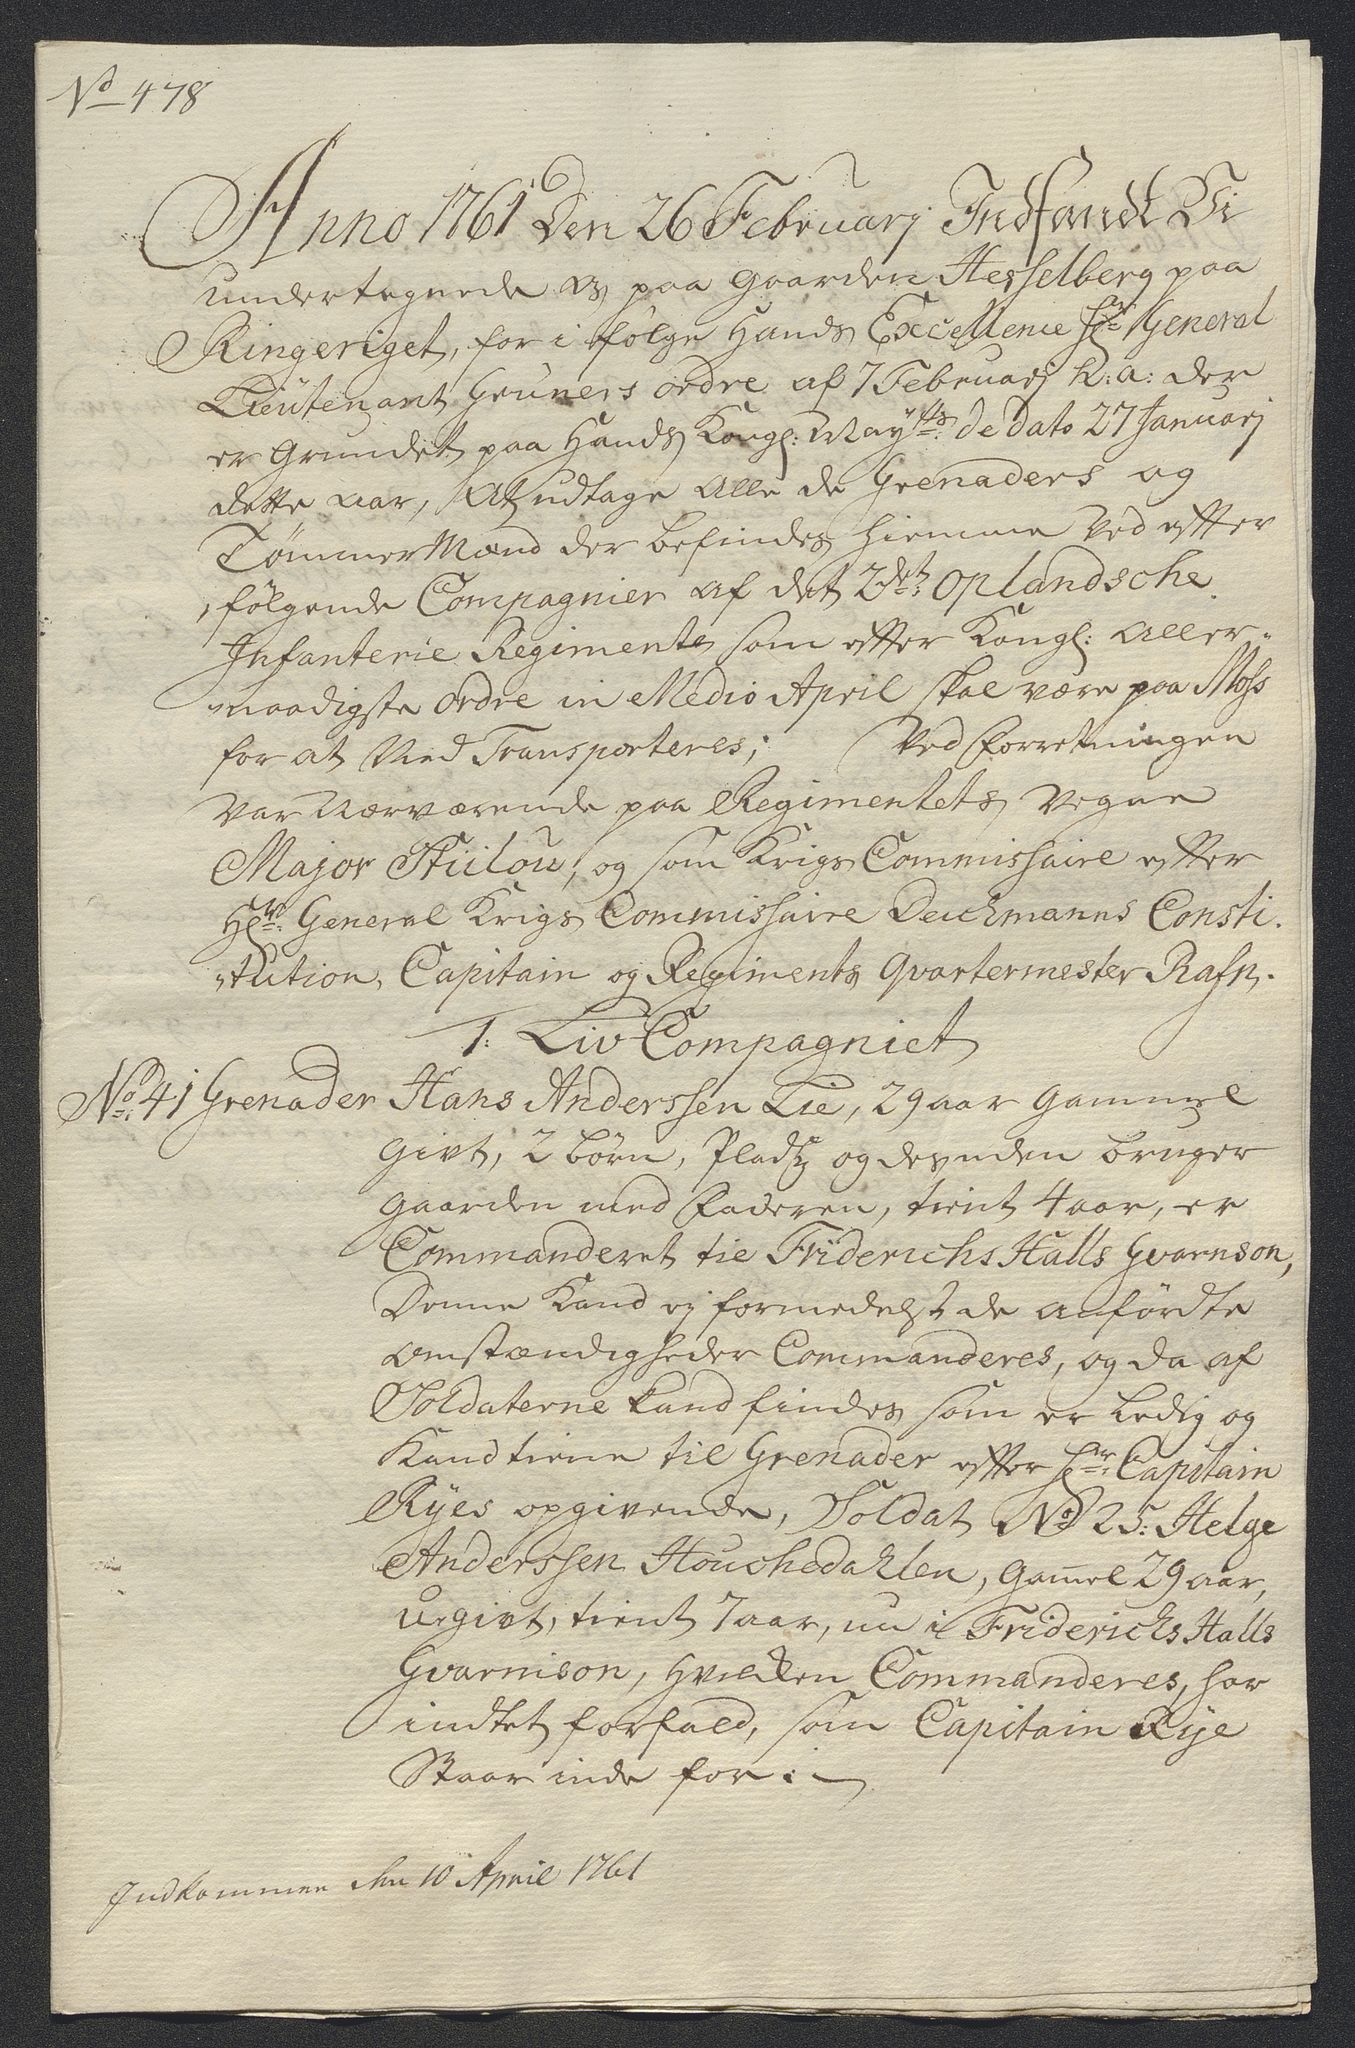 No 478
Anno 1761 Den 26 Februarj Indfandt Vi
undertegnede os paa Gaarden Hesselberg paa
Ringeriget, for i følge Hands Excellence Hr General
Lieutenant Gruners ordre af 7 Februarj h: a: der
er Grundet paa Hands Kongl: Mayts: de Dato 27 Januarj
dette aar, At udtage Alle de Grenaders og
TømmerMænd der befindes hiemme Ved efter
følgende Compagnier af det 2det: Oplandsche
Infanterie Regimente som efter Kongl: Aller-
naadigste Ordre in Medio April skal være paa Moss
for at Ned Transporteres; Ved Forretningen
var Nærværende paa Regimentets Vegne
Major Stülou, og som Krigs Commissaire efter
Hr: General Krigs Commissaire Deichmanns Consti-
tution, Capitain og Regiments Qvartermester Rafn.
1: Liv Compagniet
No: 41 Grenader Hans Anderssen Lie, 29 aar Gammel
Givt, 2 børn, Pladtz og desuden bruger
Gaarden med Faderen, tient 4 aar, er
Commanderet til Friderichs Halls Gvarnson,
Denne Kand ej formedelst de anførdte
omstændigheder Commanderes, og da af
Soldaterne kand findes som er Ledig og
Kand tiene til Grenader efter Hr: Capitain
Ryes opgivende, Soldat No 25: Helge
Anderssen Houchedahlen, Gammel 29 aar,
ugivt, tient 7 aar, nu i Friderichs Halls
Gvarnison, Hvilken Commanderes, har
indtet forfald, som Capitain Rye
Staar inde for :
Indkommen den 10 April 1761